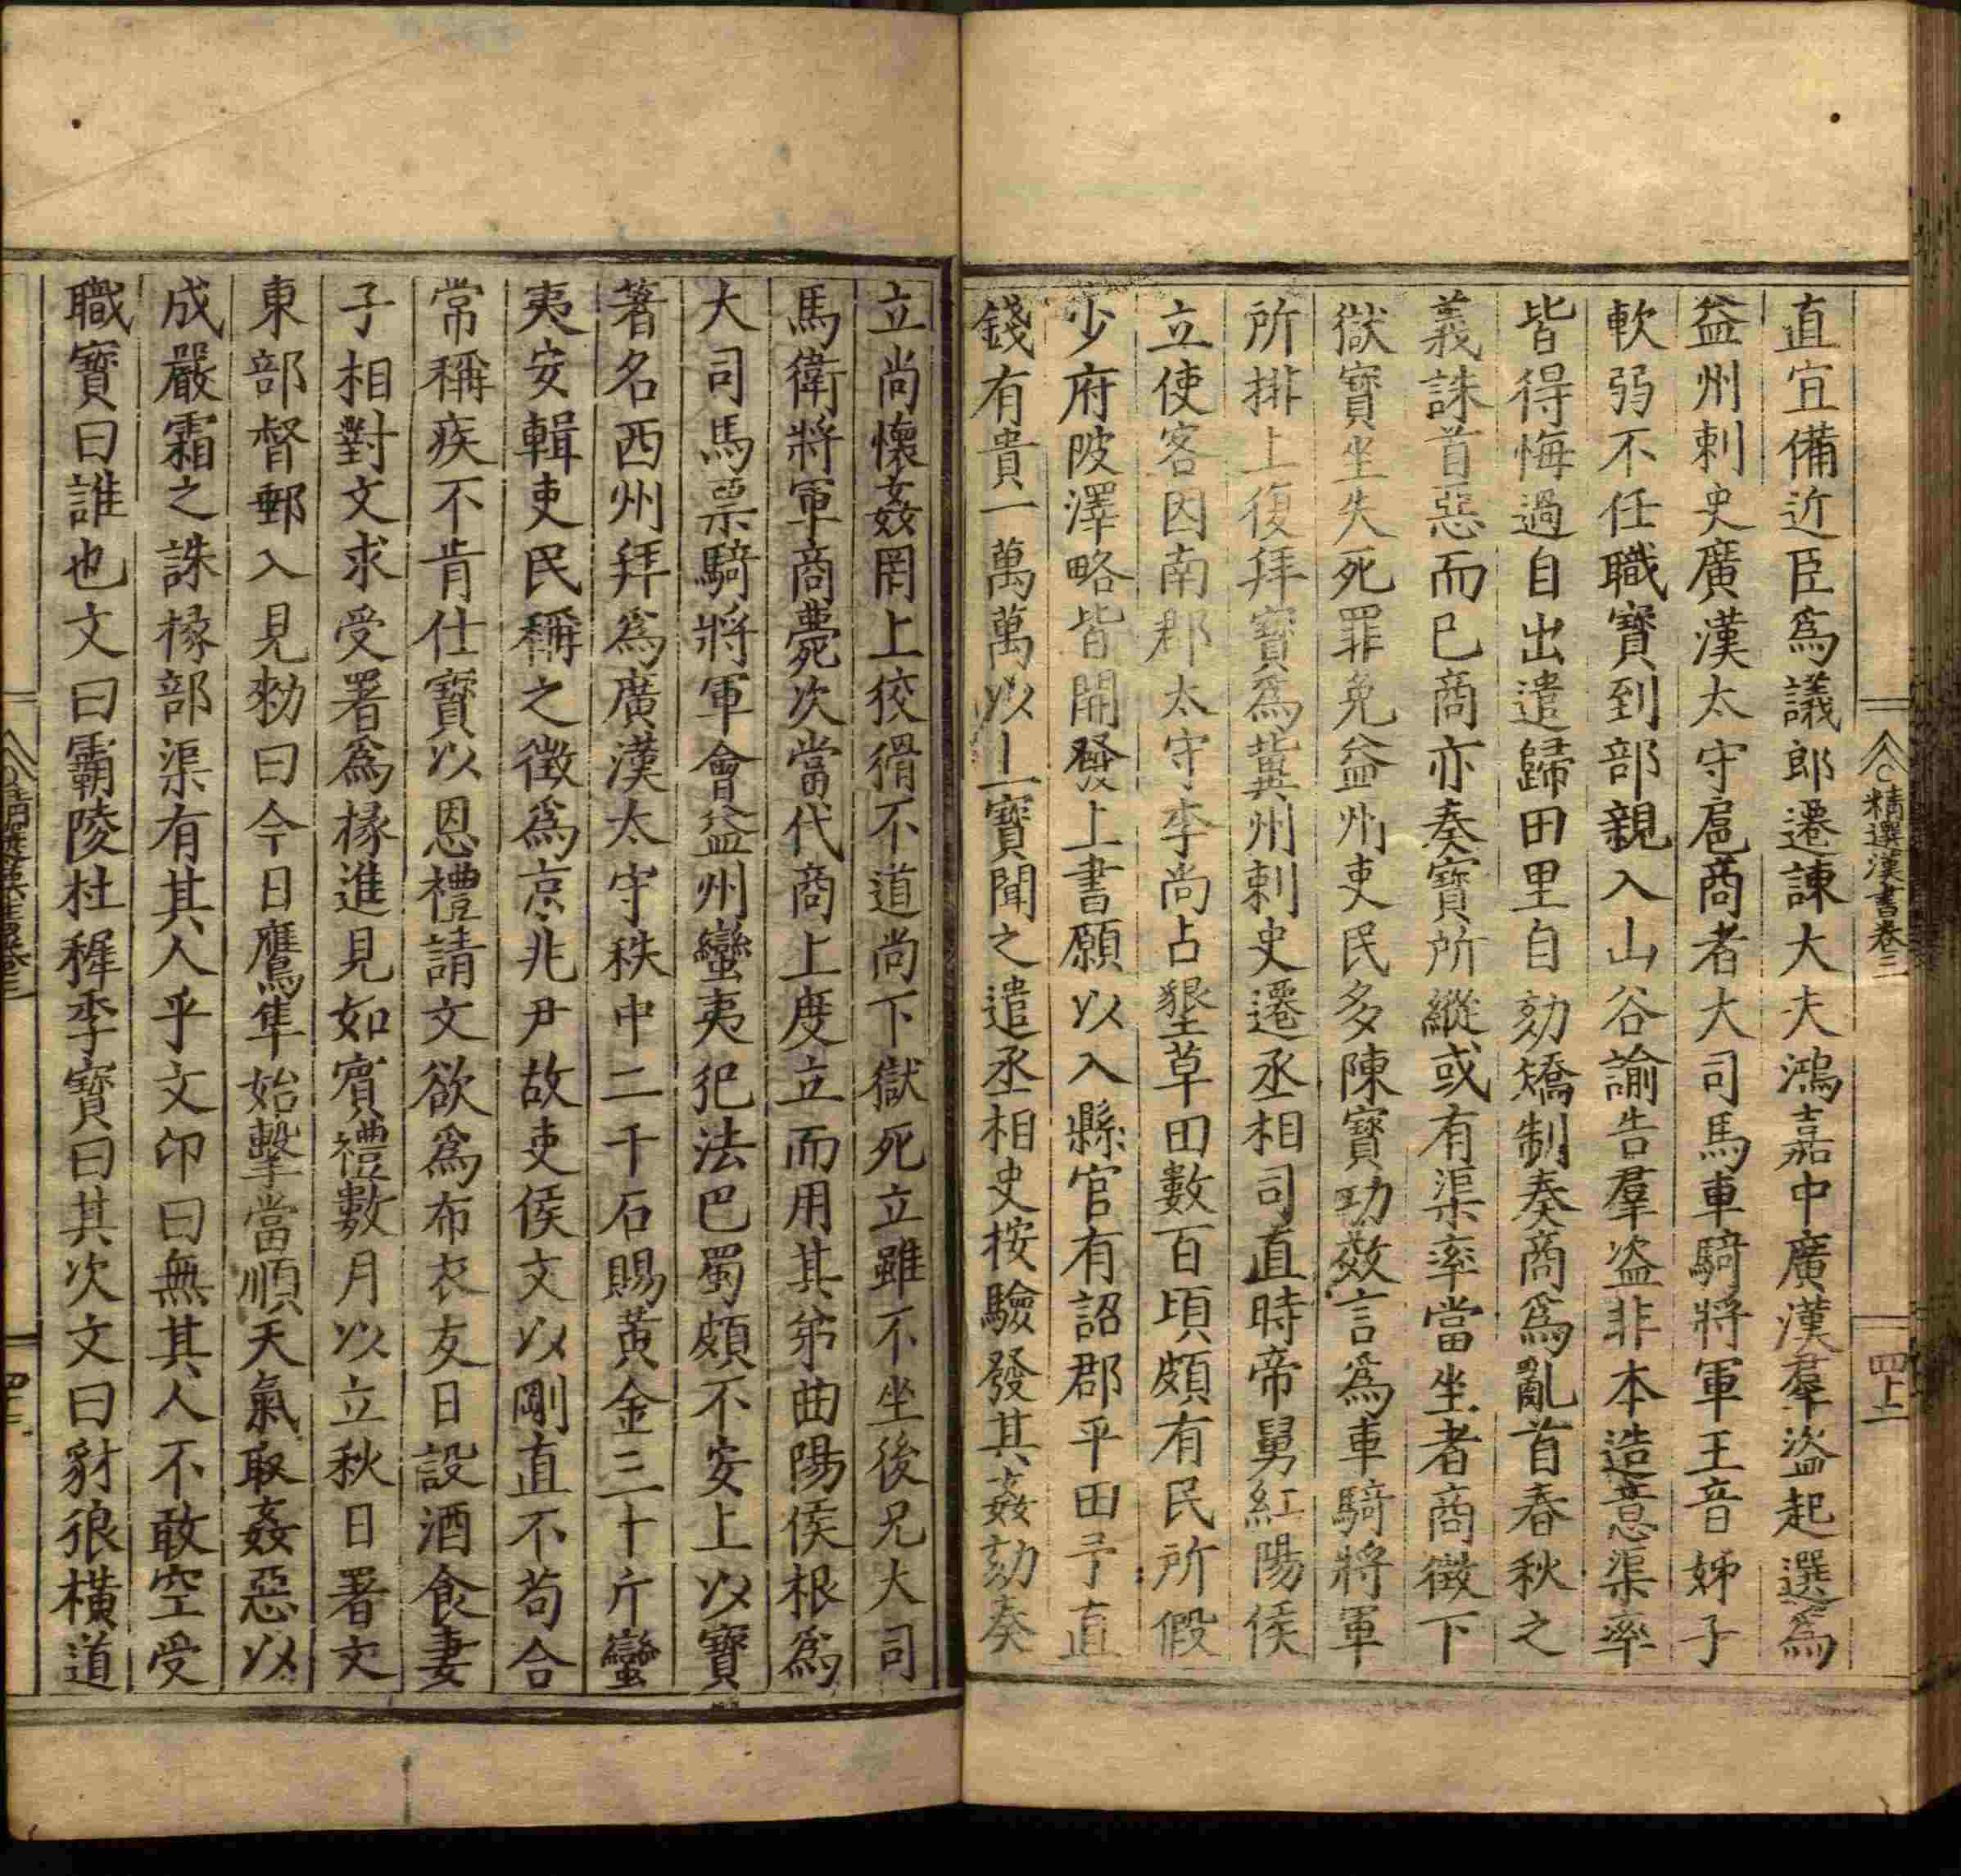 精選漢書卷三
四上
直宜備近臣爲議郎遷諫大夫鴻嘉中廣漢羣盜起選爲
益州刺史廣漢太守扈商者大司馬車騎將軍王音姊子
軟弱不任職寶到部親入山谷諭告羣盜非本造意渠率
皆得悔過自出遣歸田里自劾矯制奏商爲亂首春秋之
義誅首惡而已商亦奏寶所縱或有渠率當坐者商徵下
獄寶坐失死罪免益州吏民多陳寶功效言爲車騎將軍
所排上復拜寶爲冀州刺史遷丞相司直時帝舅紅陽侯
立使客因南郡太守李尚占墾草田數百頃頗有民所假
少府陂澤略皆開發上書願以入縣官有詔郡平田予直
錢有貴一萬萬以上寶聞之遣丞相史按驗發其姦劾奏
立尚懷姦罔上狡猾不道尚下獄死立雖不坐後兄大司
馬衛將軍商薨次當代商上度立而用其弟曲陽侯根爲
大司馬票騎將軍會益州蠻夷犯法巴蜀頗不安上以寶
著名西州拜爲廣漢太守秩中二千石賜黃金三十斤蠻
夷安輯吏民稱之徵爲京兆尹故吏侯文以剛直不苟合
常稱疾不肯仕寶以恩禮請文欲爲布衣友日設酒食妻
子相對文求受署爲掾進見如賓禮數月以立秋日署文
東部督郵入見勑曰今日鷹隼始擊當順天氣取姦惡以
成嚴霜之誅掾部渠有其人乎文卬曰無其人不敢空受
職寶曰誰也文曰霸陵杜穉季寶曰其次文曰豺狼橫道